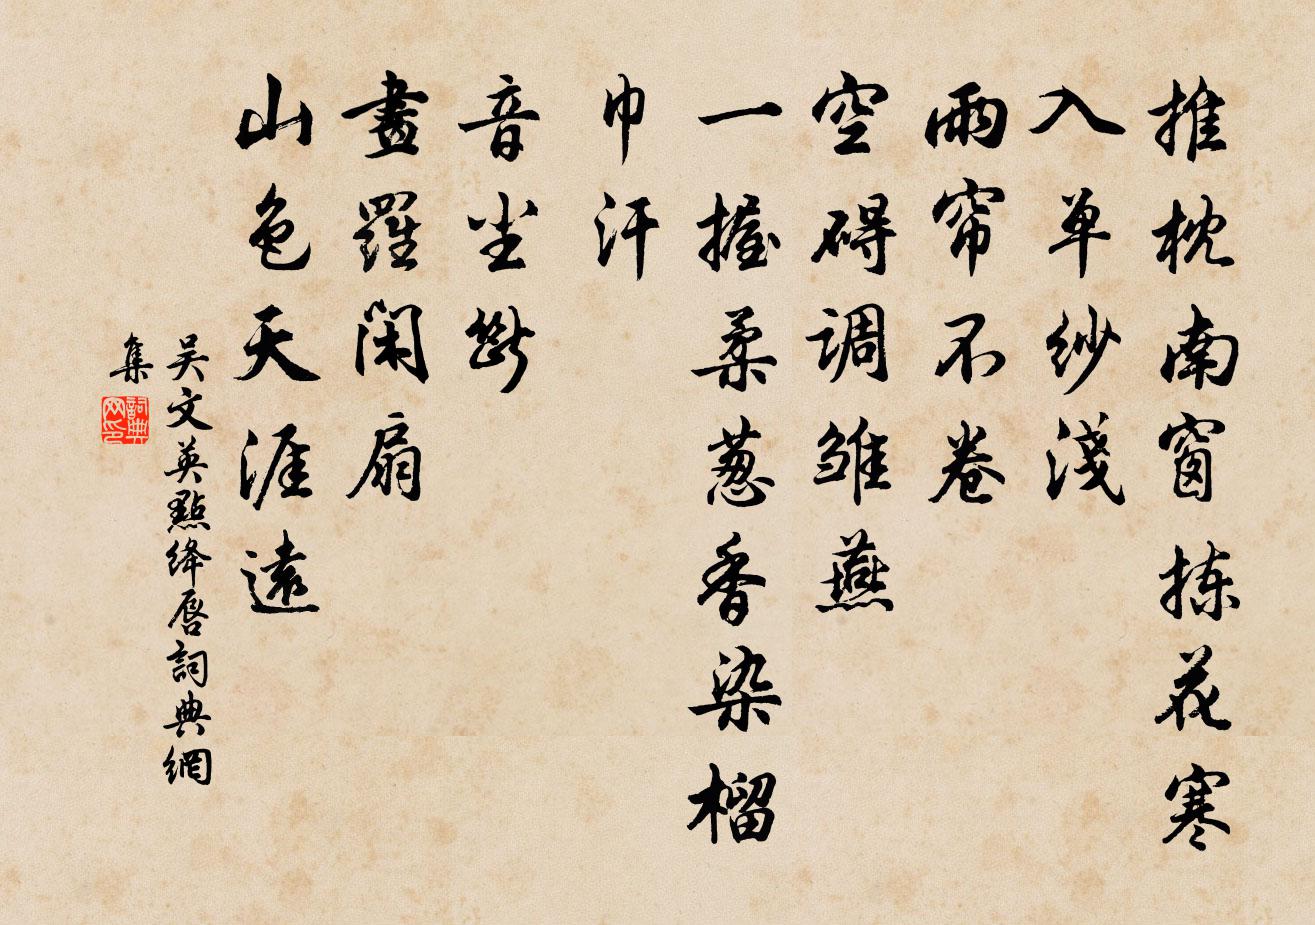 推枕南窗拣花寒
入单纱淺
雨帘不卷
空碍调雏燕
一握柔葱香染榴
巾汗
音尘斷
畫羅闲扇
山色天涯遠
吴文英點绛唇詞典網
集
詞典网印